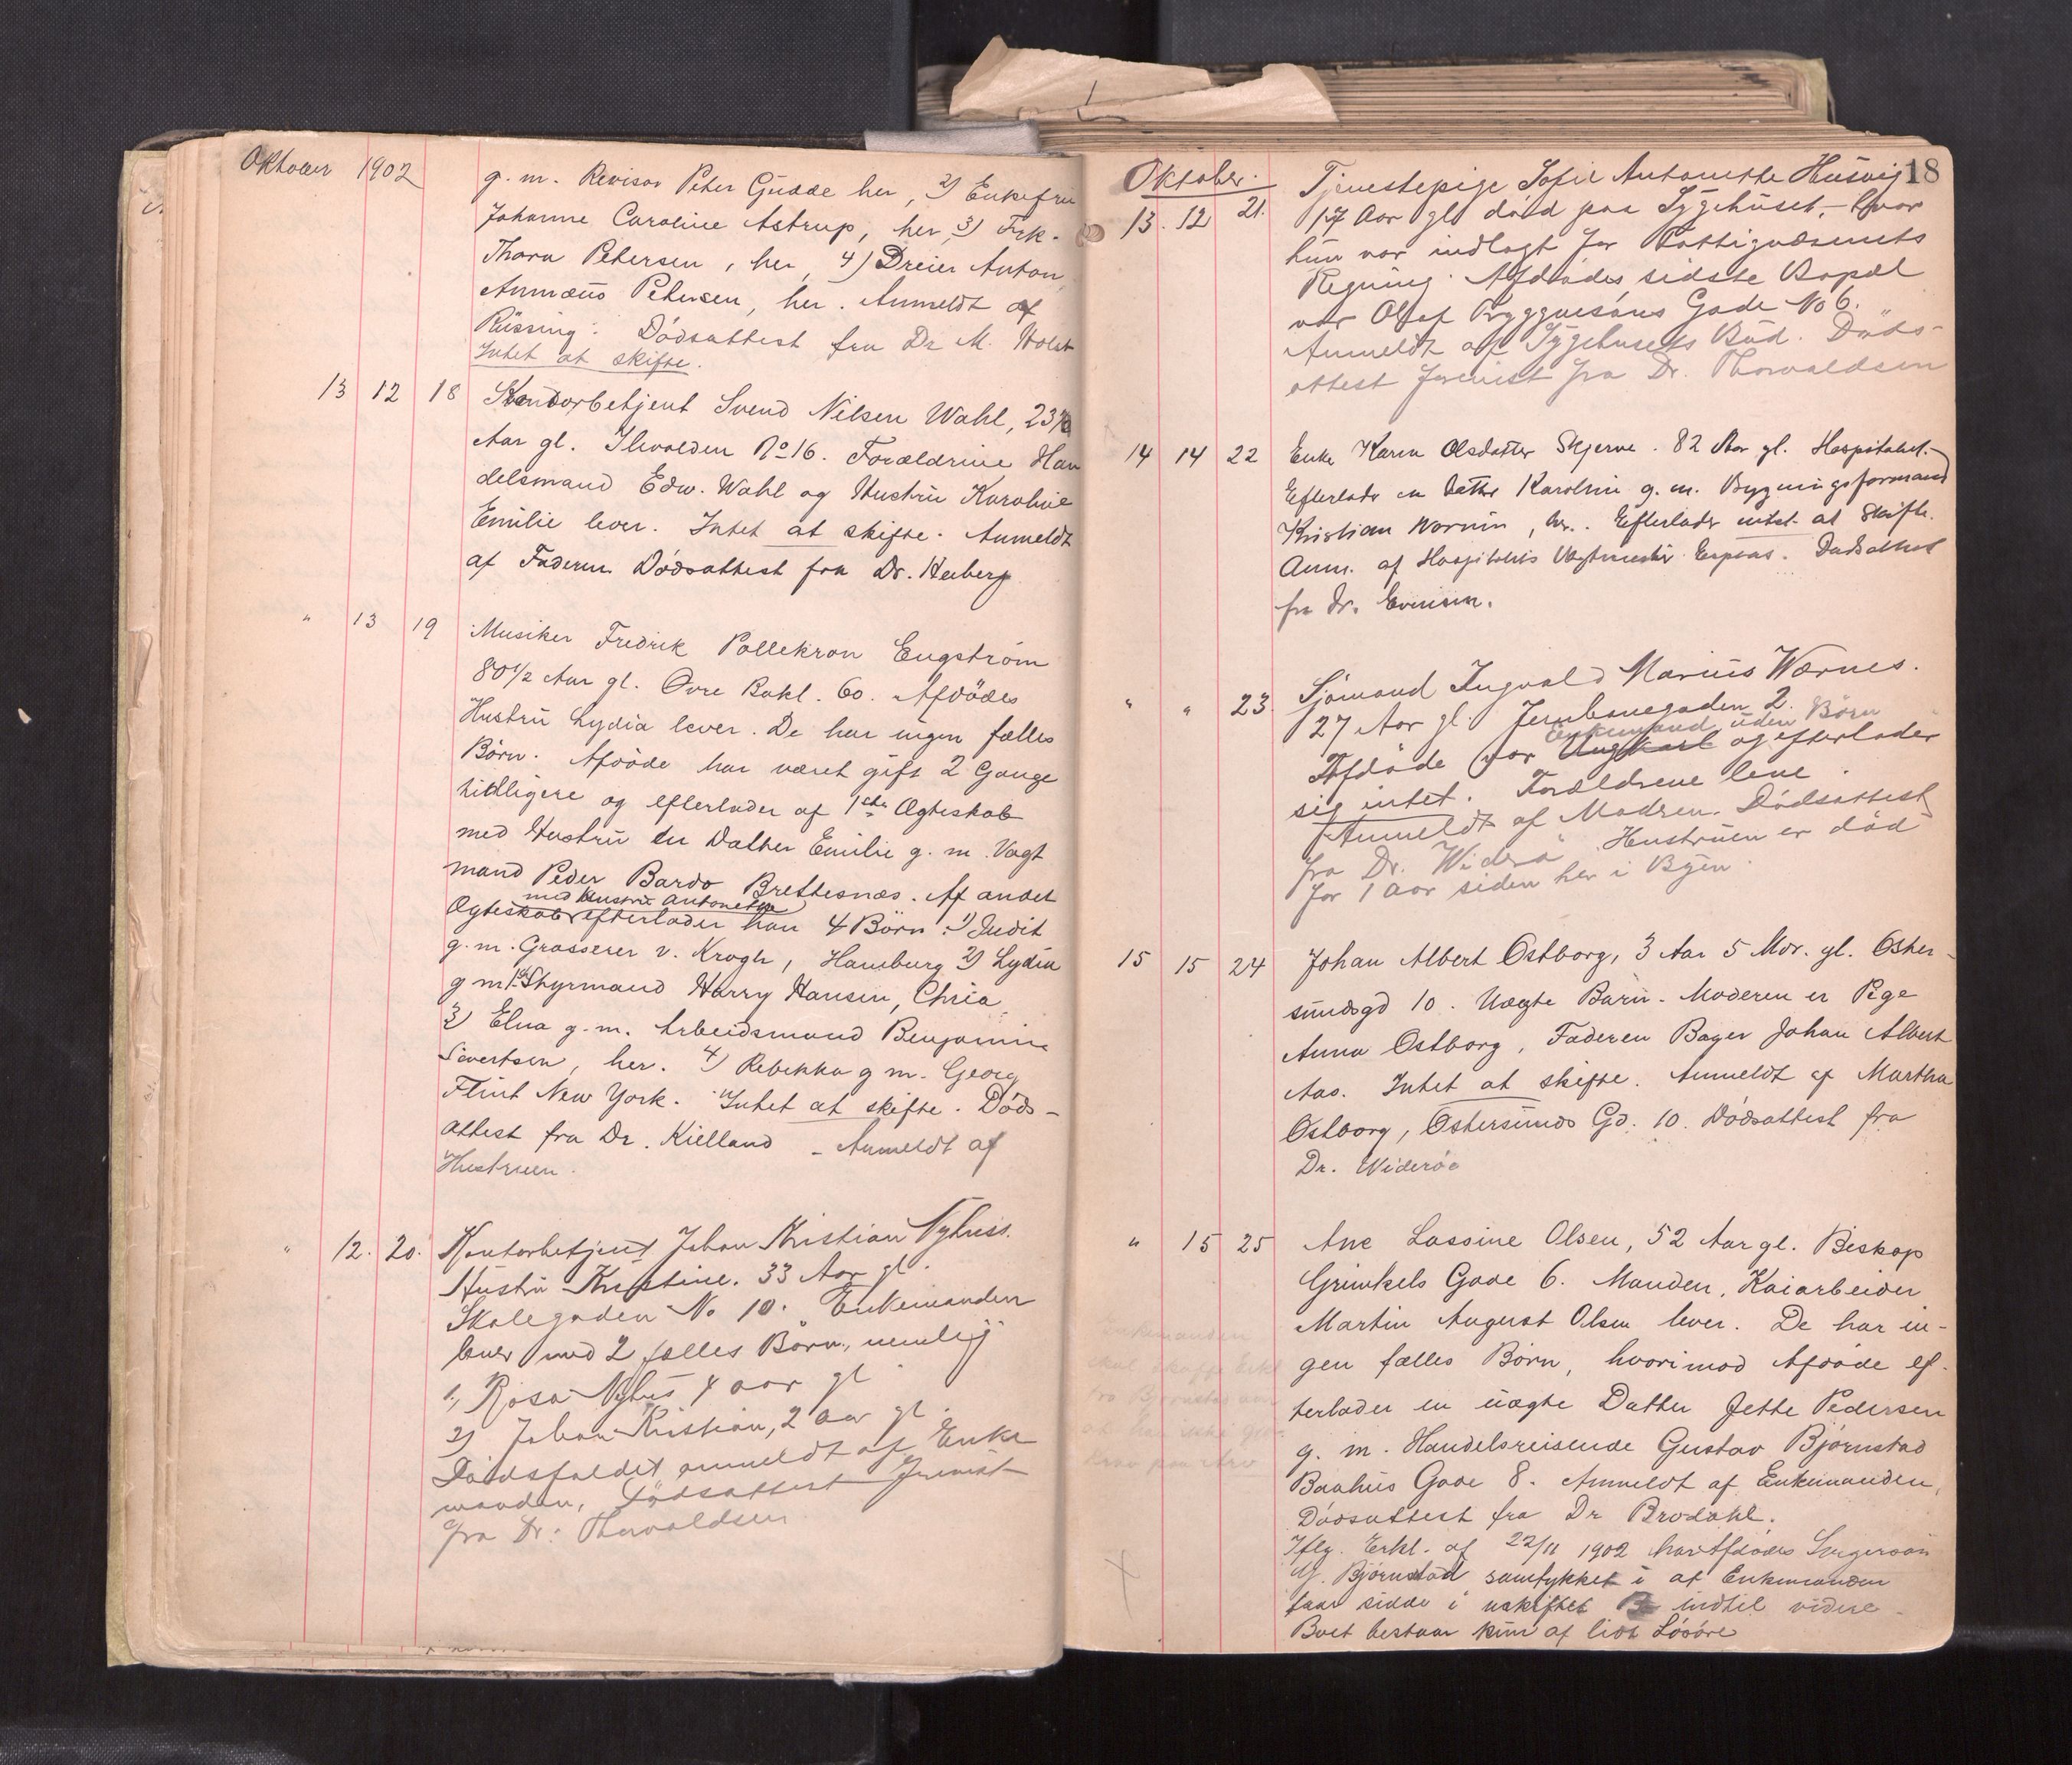 Oktober 1902
g. m. Revisor Peter Gudde her, 2) Enkefru
Johanne Caroline Astrup, her, 3) Frk.
Thora Petersen, her, 4) Dreier Anton
Anmæus Petersen, her. Anmeldt af
Rüssing. Dödsattest fra Dr M. Holst
Intet at skifte.
13 12 18 Kontorbetjent Svend Nilsen Wahl, 23½
Aar gl. Ilevolden No 16. Forældrene Han
delsmand Edw. Wahl og Hustru Karoline
Emilie lever. Intet at skifte. Anmeldt
af Faderen. Dödsattest fra Dr. Heiberg
" 13 19 Musiker Fredrik Pallekron Engström
80½ Aar gl. Övre Bakl. 60. Afdödes
Hustru Lydia lever. De har ingen fælles
Börn. Afdöde har været gift 2 Gange
tidligere og efterlader af 1ste Ægteskab
med Hustru en Datter Emilie g. m. Vagt
mand Peder Bardo Brettesnæs. Af andet
med Hustru Antonette
Ægteskab efterlader han 4 Börn: 1) Judit
g. m. Grosserer v. Krogh, Hamburg 2) Lydia
g m 1st Styrmand Harry Hansen, Chria
3) Elna g. m. Arbeidsmand Benjamin
Sivertsen, her. 4) Rebekka g m. Georg
Flint New York. Intet at skifte. Döds-
attest fra Dr. Kielland - Anmeldt af
Hustruen.
" 12. 20. Kontorbetjent Johan Kristian Nyhuss.
Hustru Kristine. 33 Aar gl.
Skolegaden No 10. Enkemanden
lever med 2 fælles Börn, nemlig
1, Rosa Nyhus 4 aar gl
2) Johan Kristian, 2 aar gl.
Dödsfaldet anmeldt af Enke
manden, Dödsattest forevist
fra Dr. Thorvaldsen
18
Oktober.
13. 12 21. Tjenestepige Sofie Antonette Husvig
17 Aar gl. död paa Sygehuset, hvor
hun var indlagt for Fattigvæsenets
Regning. Afdödes sidste Bopæl
var Olaf Tryggvesöns Gade No 6.
Anmeldt af Sygehusets Bud. Döds-
attest forevist fra Dr. Thorvaldsen
14 14 22 Enke Karen Olsdatter Skjerve. 82 Aar gl. Hospitalet.
Efterlader en Datter Karoline g. m. Bygningsformand
Kristian Wornin, her. Efterlader intet at skifte.
Anm. af Hospitalets Vagtmester. Dödsattest
fra Dr. Evensen.
" " 23 Sjömand Ingvald Marius Wærnes.
27 Aar gl. Jernbanegaden 2.
Enkemand uden Börn
Afdöde var Ungkarl og efterlader
sig intet. Forældrene leve.
Anmeldt af Modren. Dödsattest
fra Dr. Wideröe. Hustruen er död
for 1 aar siden her i Byen.
15 15 24 Johan Albert Östborg, 3 Aar 5 Mdr. gl. Öster-
sundsgd 10. Uægte Barn. Moderen er Pige
Anna Östborg, Faderen Bager Johan Albert
Aas. Intet at skifte. Anmeldt af Martha
Östborg, Östersunds Gd. 10. Dödsattest fra
Dr. Wideröe
" 15 25 Ane Lassine Olsen, 52 Aar gl. Biskop
Grimkels Gade 6. Manden, Kaiarbeider
Martin August Olsen lever. De har in-
gen fælles Börn, hvorimod Afdöde ef-
terlader en uægte Datter Jette Pedersen
g. m. Handelsreisende Gustav Björnstad
Baahus Gade 8. Anmeldt af Enkemanden,
Dödsattest fra Dr Brodahl.
Iflg. Erkl. af 22/11 1902 har Afdödes Svigersön
G. Björnstad samtykket i at Enkemanden
faar sidde i uskiftet Bo indtil videre.
Boet bestaar kun af lidt Lösöre
Enkemanden
skal skaffe Erkl
fra Björnstad om
at han ikke gjör
Krav paa Arv
X